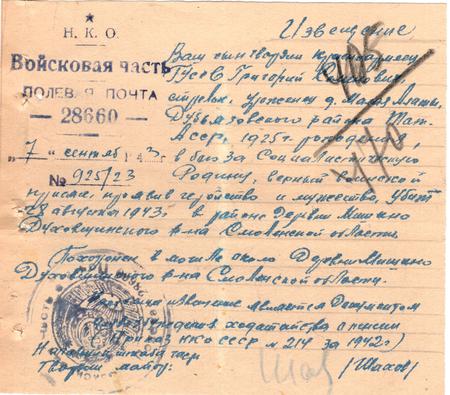 Н. К. О.
Войсковая часть
ПОЛЕВАЯ ПОЧТА
— 28660 —
"7" сентяб 43 г.
№ 925/23
Извещение
Ваш сын гвардии красноармеец
Гусев Григорий
стрелок, уроженец д. Малая
Дубьязовского района Тат.
АССР, 1925 г. рождения,
в бою за Социалистическую
Родину, верный воинской
присяге, проявив геройство и мужество, убит
августа 1943 г. в районе деревни
Духовщинского р-на Смоленской области.
Похоронен в могиле около деревни
Духовщинского р-на Смоленской области.
извещение является документом
для возбуждения ходатайства о пенсии
(Приказ НКО СССР № 214 за 1942 г)
Начальник штаба
Гвардии майор:
(Шахов)